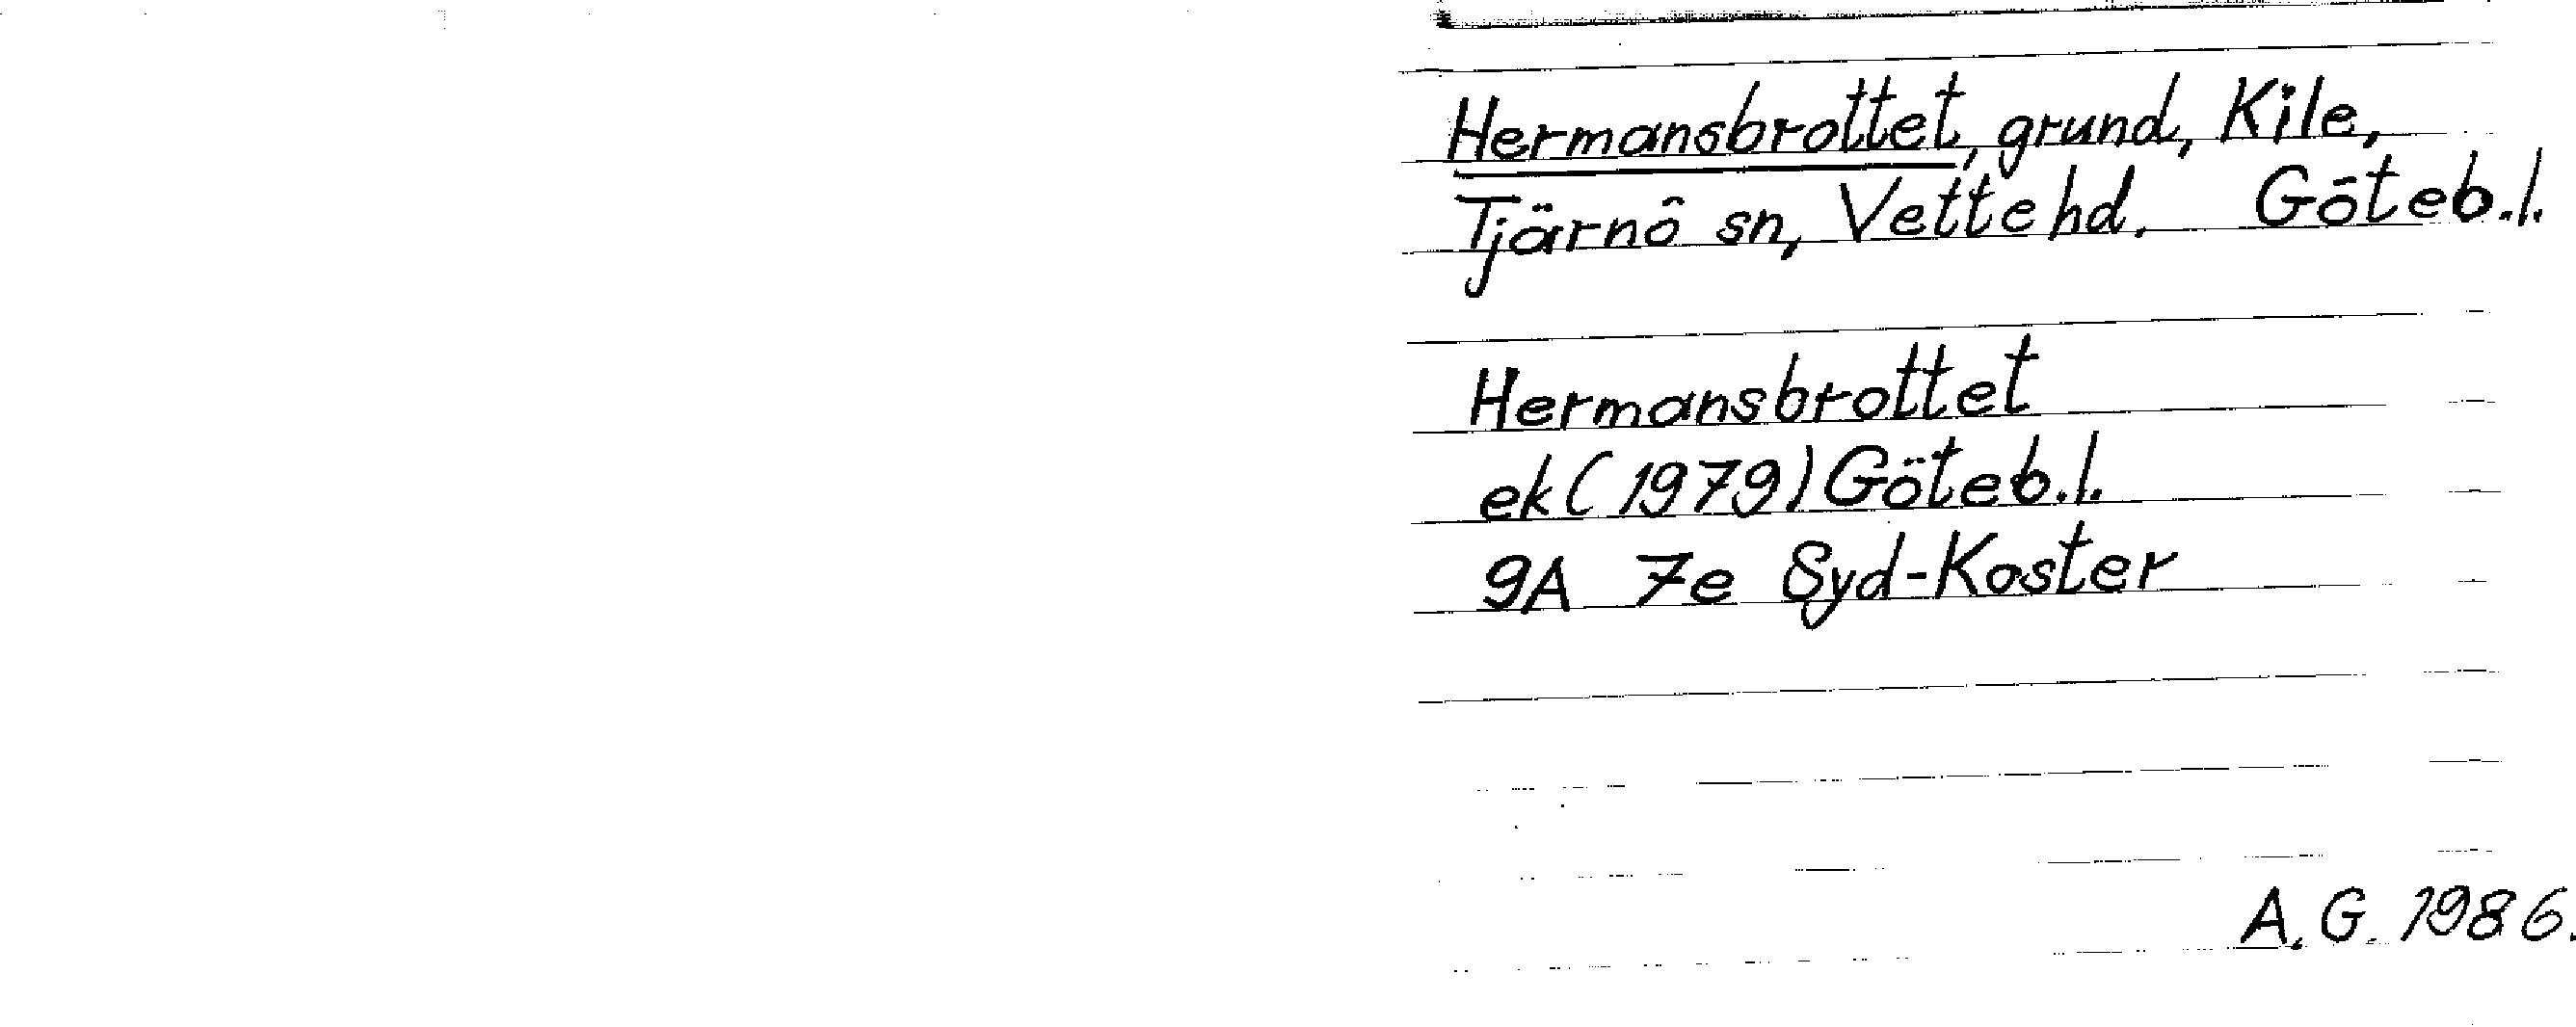 Hermansbrottet, grund, Kile,
Tjärnö sn, Vette hd. Göteb.l.
Hermansbrottet
ek (1979) Göteb.l.
9A 7e Syd-Koster
A.G. 1986.